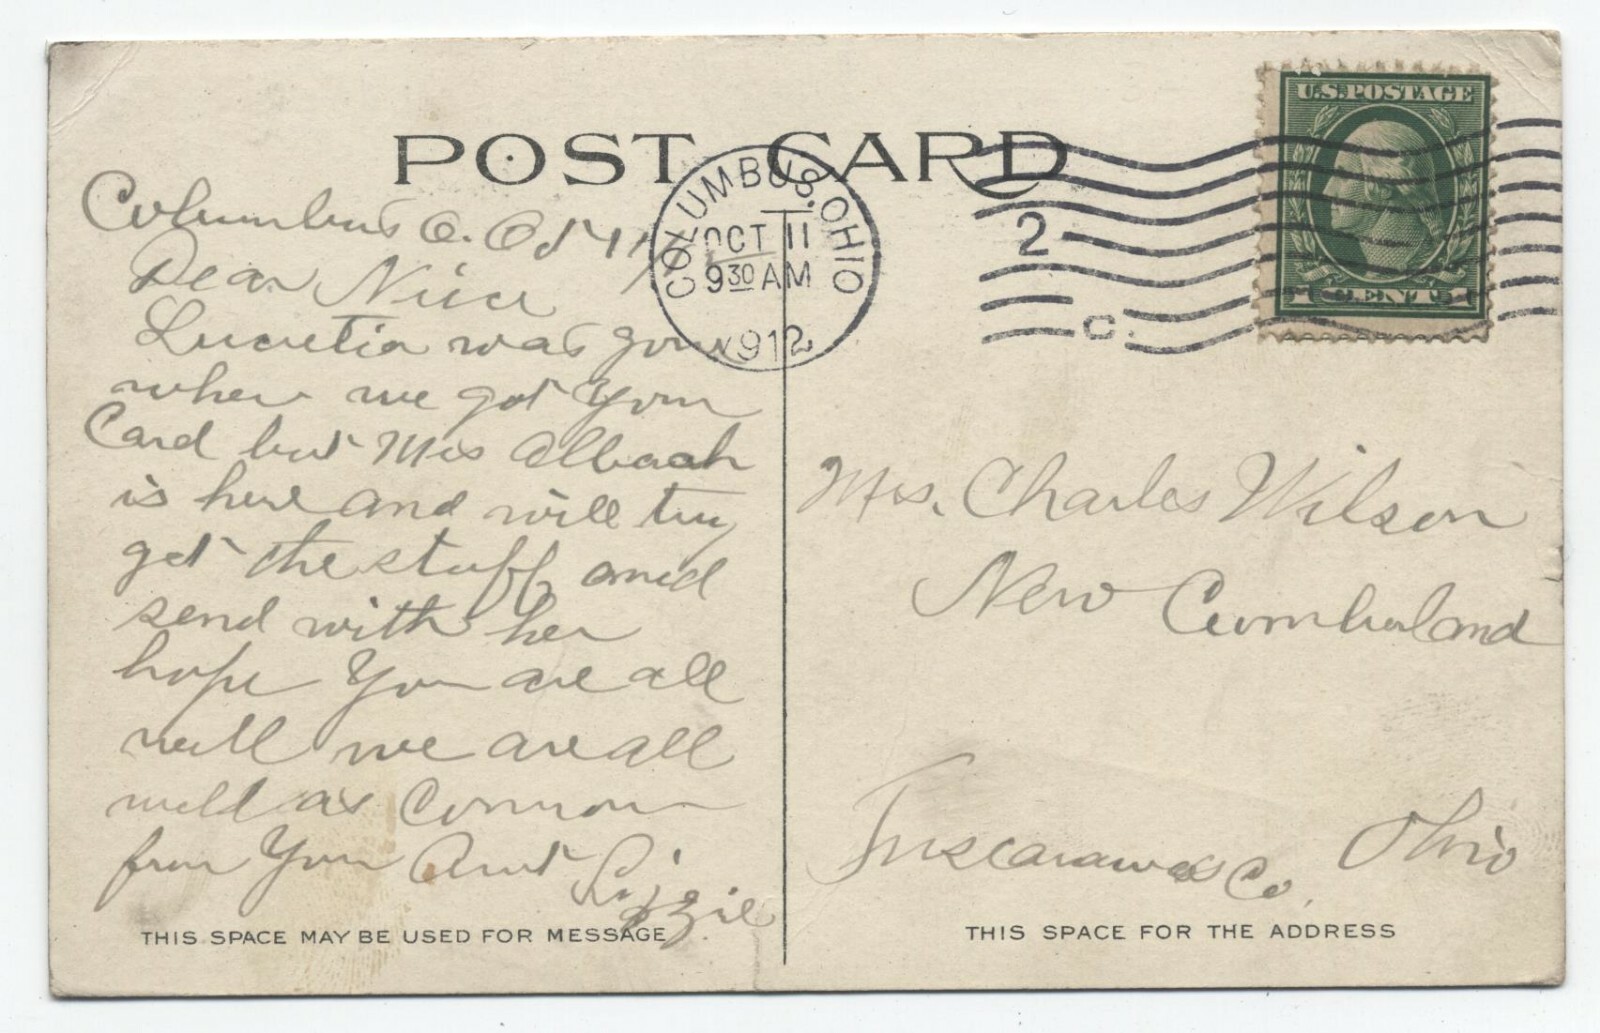 POST CARD
U.S. POSTAGE
COLUMBUS, OHIO
OCT 11
9 30 AM
1912
2
C.
1 CENT 1
Columbus O. Oct 11
Dear Niece
Lucretia was gone
when we got your
Card but Mis Albaah
is here and will try
get the stuff and
send with her
hope you are all
well we are all
well as Common
from Your Aunt Lizzie
THIS SPACE MAY BE USED FOR MESSAGE
Mrs. Charles Wilson
New Cumberland
Tuscarawas Co. Ohio
THIS SPACE FOR THE ADDRESS